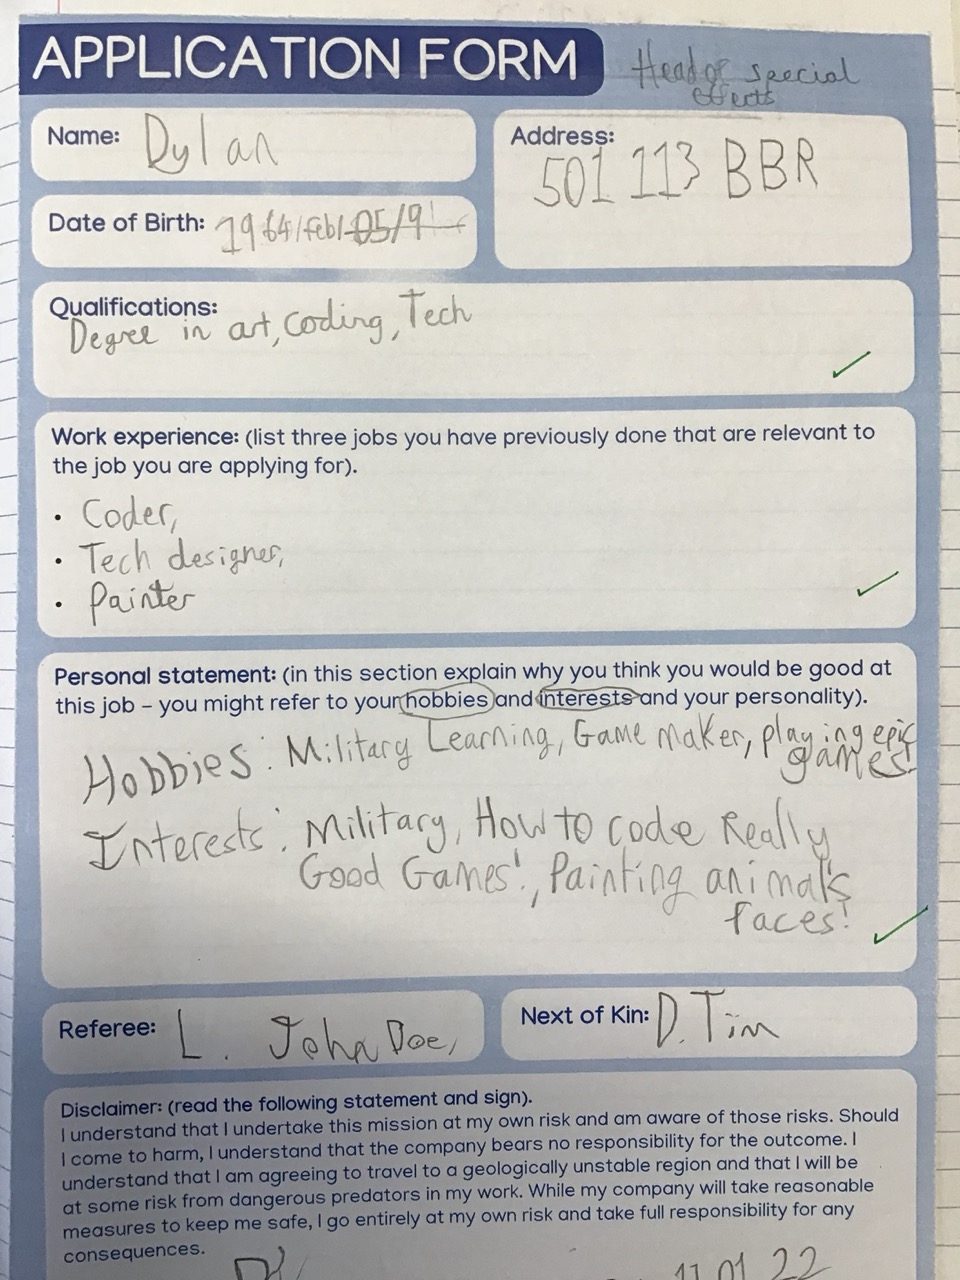 APPLICATION FORM
Head of special
effects
Name: Dylan
Address:
501 113 BBR
Date of Birth: 1964/feb/05/9
Qualifications:
Degree in art, Coding, Tech
Work experience: (list three jobs you have previously done that are relevant to
the job you are applying for).
• Coder,
• Tech designer,
• Painter
Personal statement: (in this section explain why you think you would be good at
this job – you might refer to your hobbies and interests and your personality).
Hobbies: Military Learning, Game maker, playing epic
games!
Interests: Military, How to code Really
Good Games!, Painting animals
faces!
Referee: L. John Doe,
Next of Kin: D. Tim
Disclaimer: (read the following statement and sign).
I understand that I undertake this mission at my own risk and am aware of those risks. Should
I come to harm, I understand that the company bears no responsibility for the outcome. I
understand that I am agreeing to travel to a geologically unstable region and that I will be
at some risk from dangerous predators in my work. While my company will take reasonable
measures to keep me safe, I go entirely at my own risk and take full responsibility for any
consequences.
11.01.22